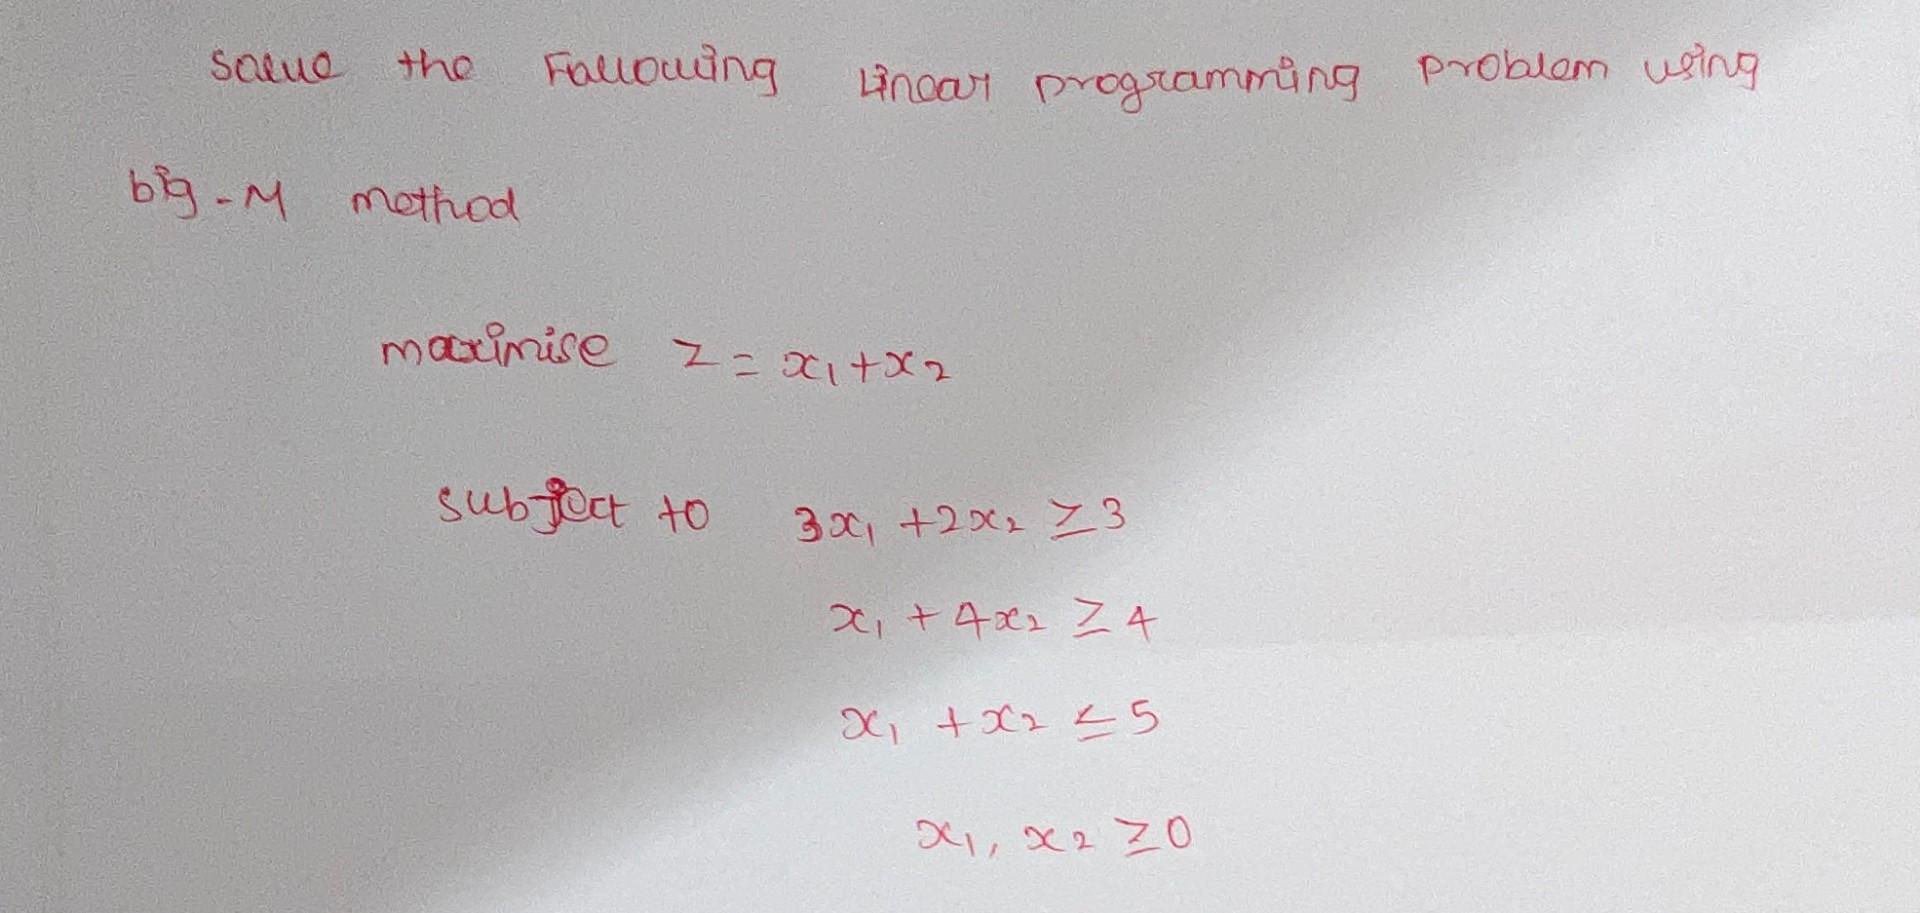 Solve the Following Linear programming problem using
big-M method
maximise z = x₁+x₂
subject to 3x₁ +2x₂ ≥3
x₁ + 4x₂ ≥ 4
x₁ +x₂ ≤5
x₁, x₂ ≥0